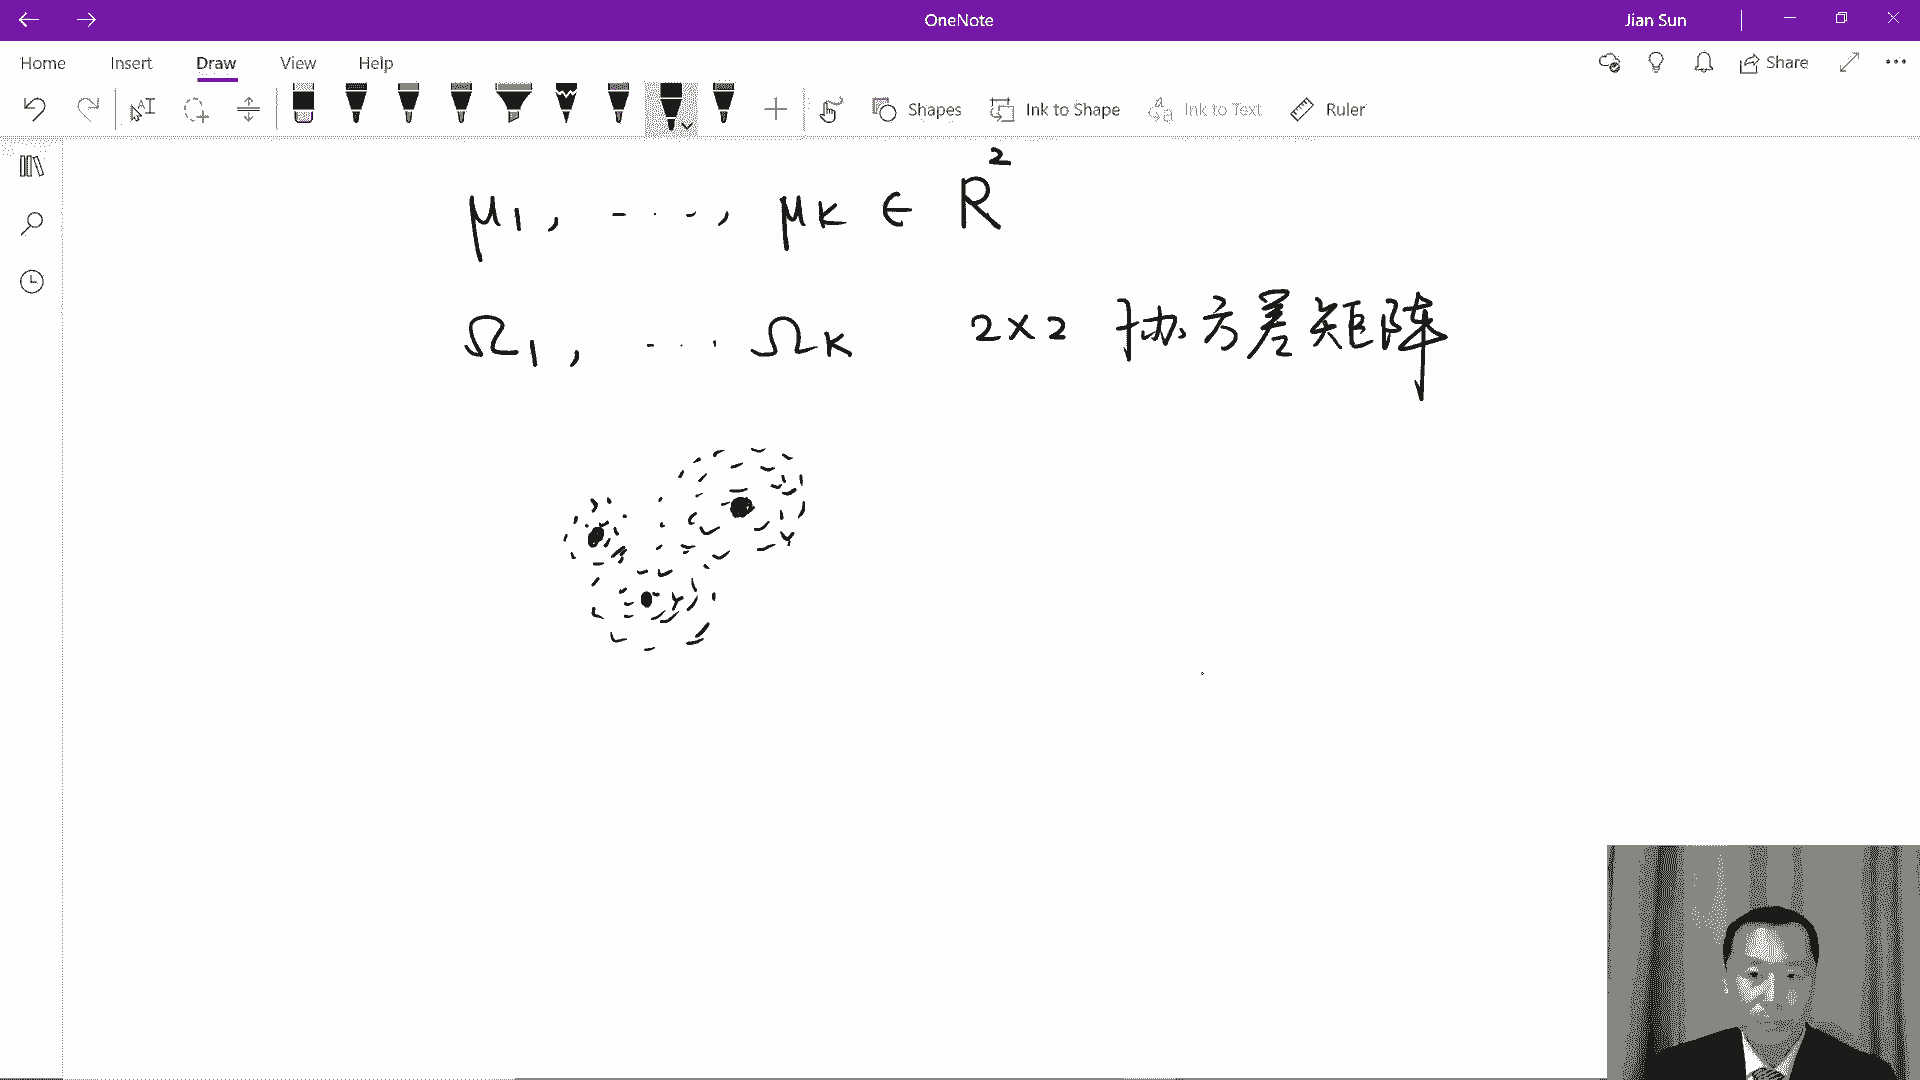 OneNote
Jian Sun
Home Insert Draw View Help
Share
Shapes Ink to Shape Ink to Text Ruler
μ1, ····, μK ∈ R²
Ω1, ··· ΩK 2×2 协方差矩阵